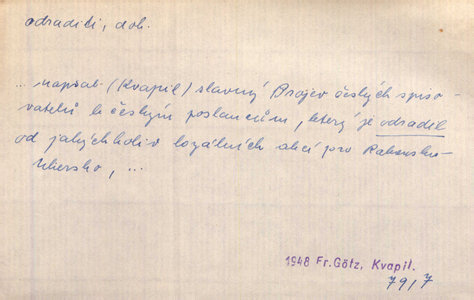 odraditi, dok.
... napsal (Kvapil) slavný Projev českých spiso-
vatelů k českým poslancům, který je odradil
od jakýchkoliv loyálních akcí pro Rakousko-
Uhersko, ...
1948 Fr.Götz, Kvapil.
79/7